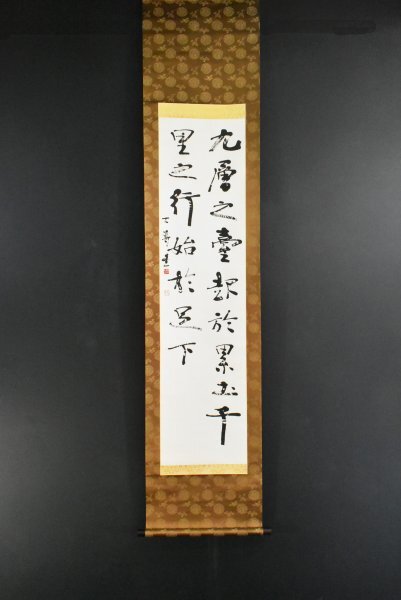 九層之臺起於累土千
里之行始於足下